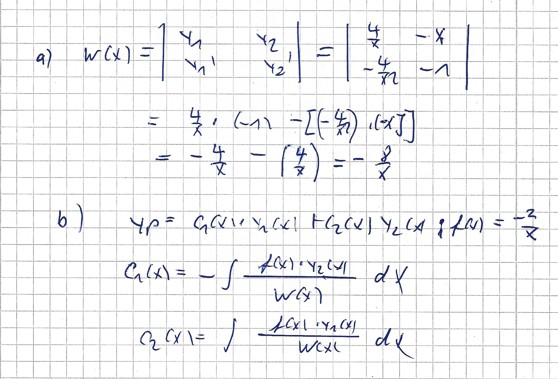 a) W(x) = | y₁ y₂ | = | 4/x -x |
| y₁' y₂' | | -4/x² -1 |
= 4/x · (-1) - [(-4/x²) · (-x)]
= -4/x - (4/x) = - 8/x
b) yp = C₁(x) · y₁(x) + C₂(x) y₂(x) ; f(x) = -2/x
C₁(x) = - ∫ f(x) · y₂(x) / W(x) dx
C₂(x) = ∫ f(x) · y₁(x) / W(x) dx